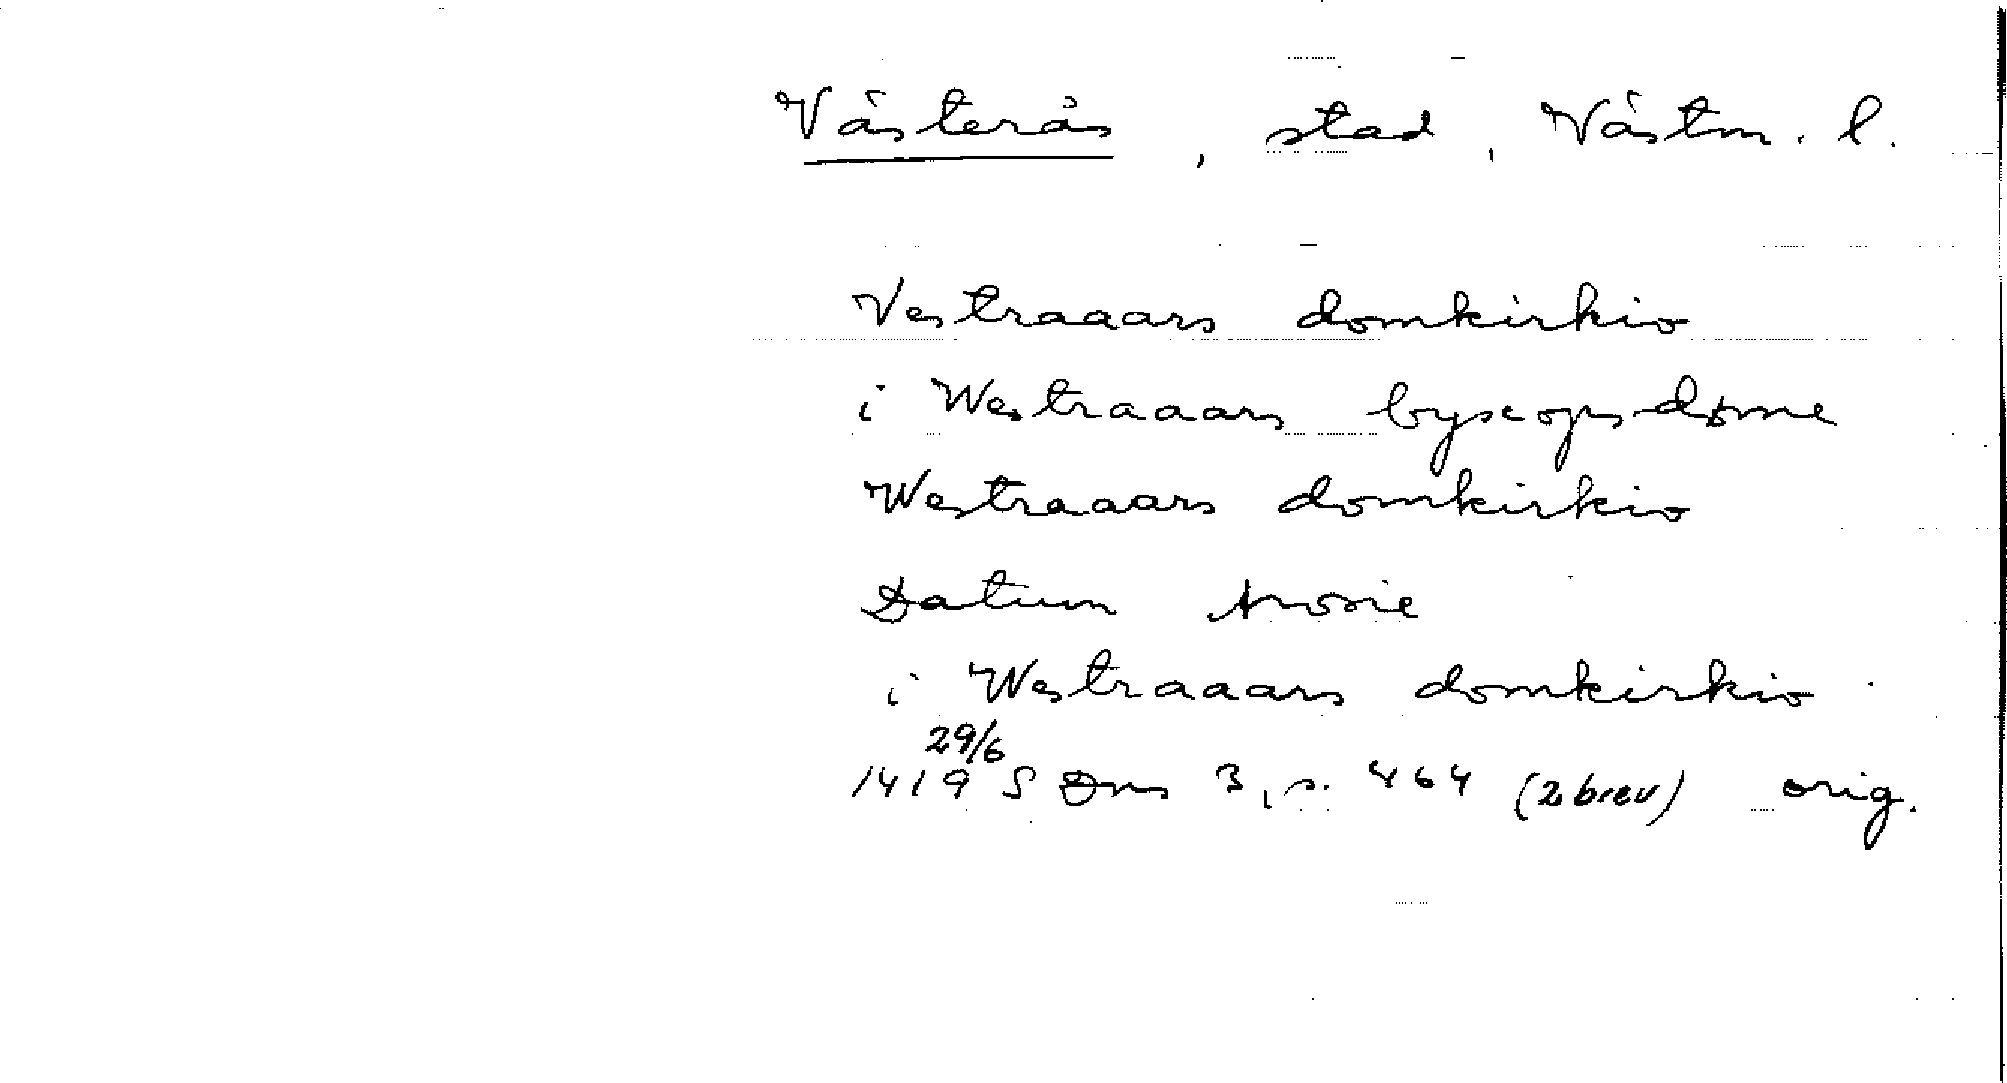 Västerås, stad, Västm. l.
Vestraaars domkirkio
i Westraaars byscopsdøme
Westraaars domkirkio
Datum Arosie
i Westraaars domkirkio
29/6
1419 SDns 3, s. 464 (2 brev) orig.